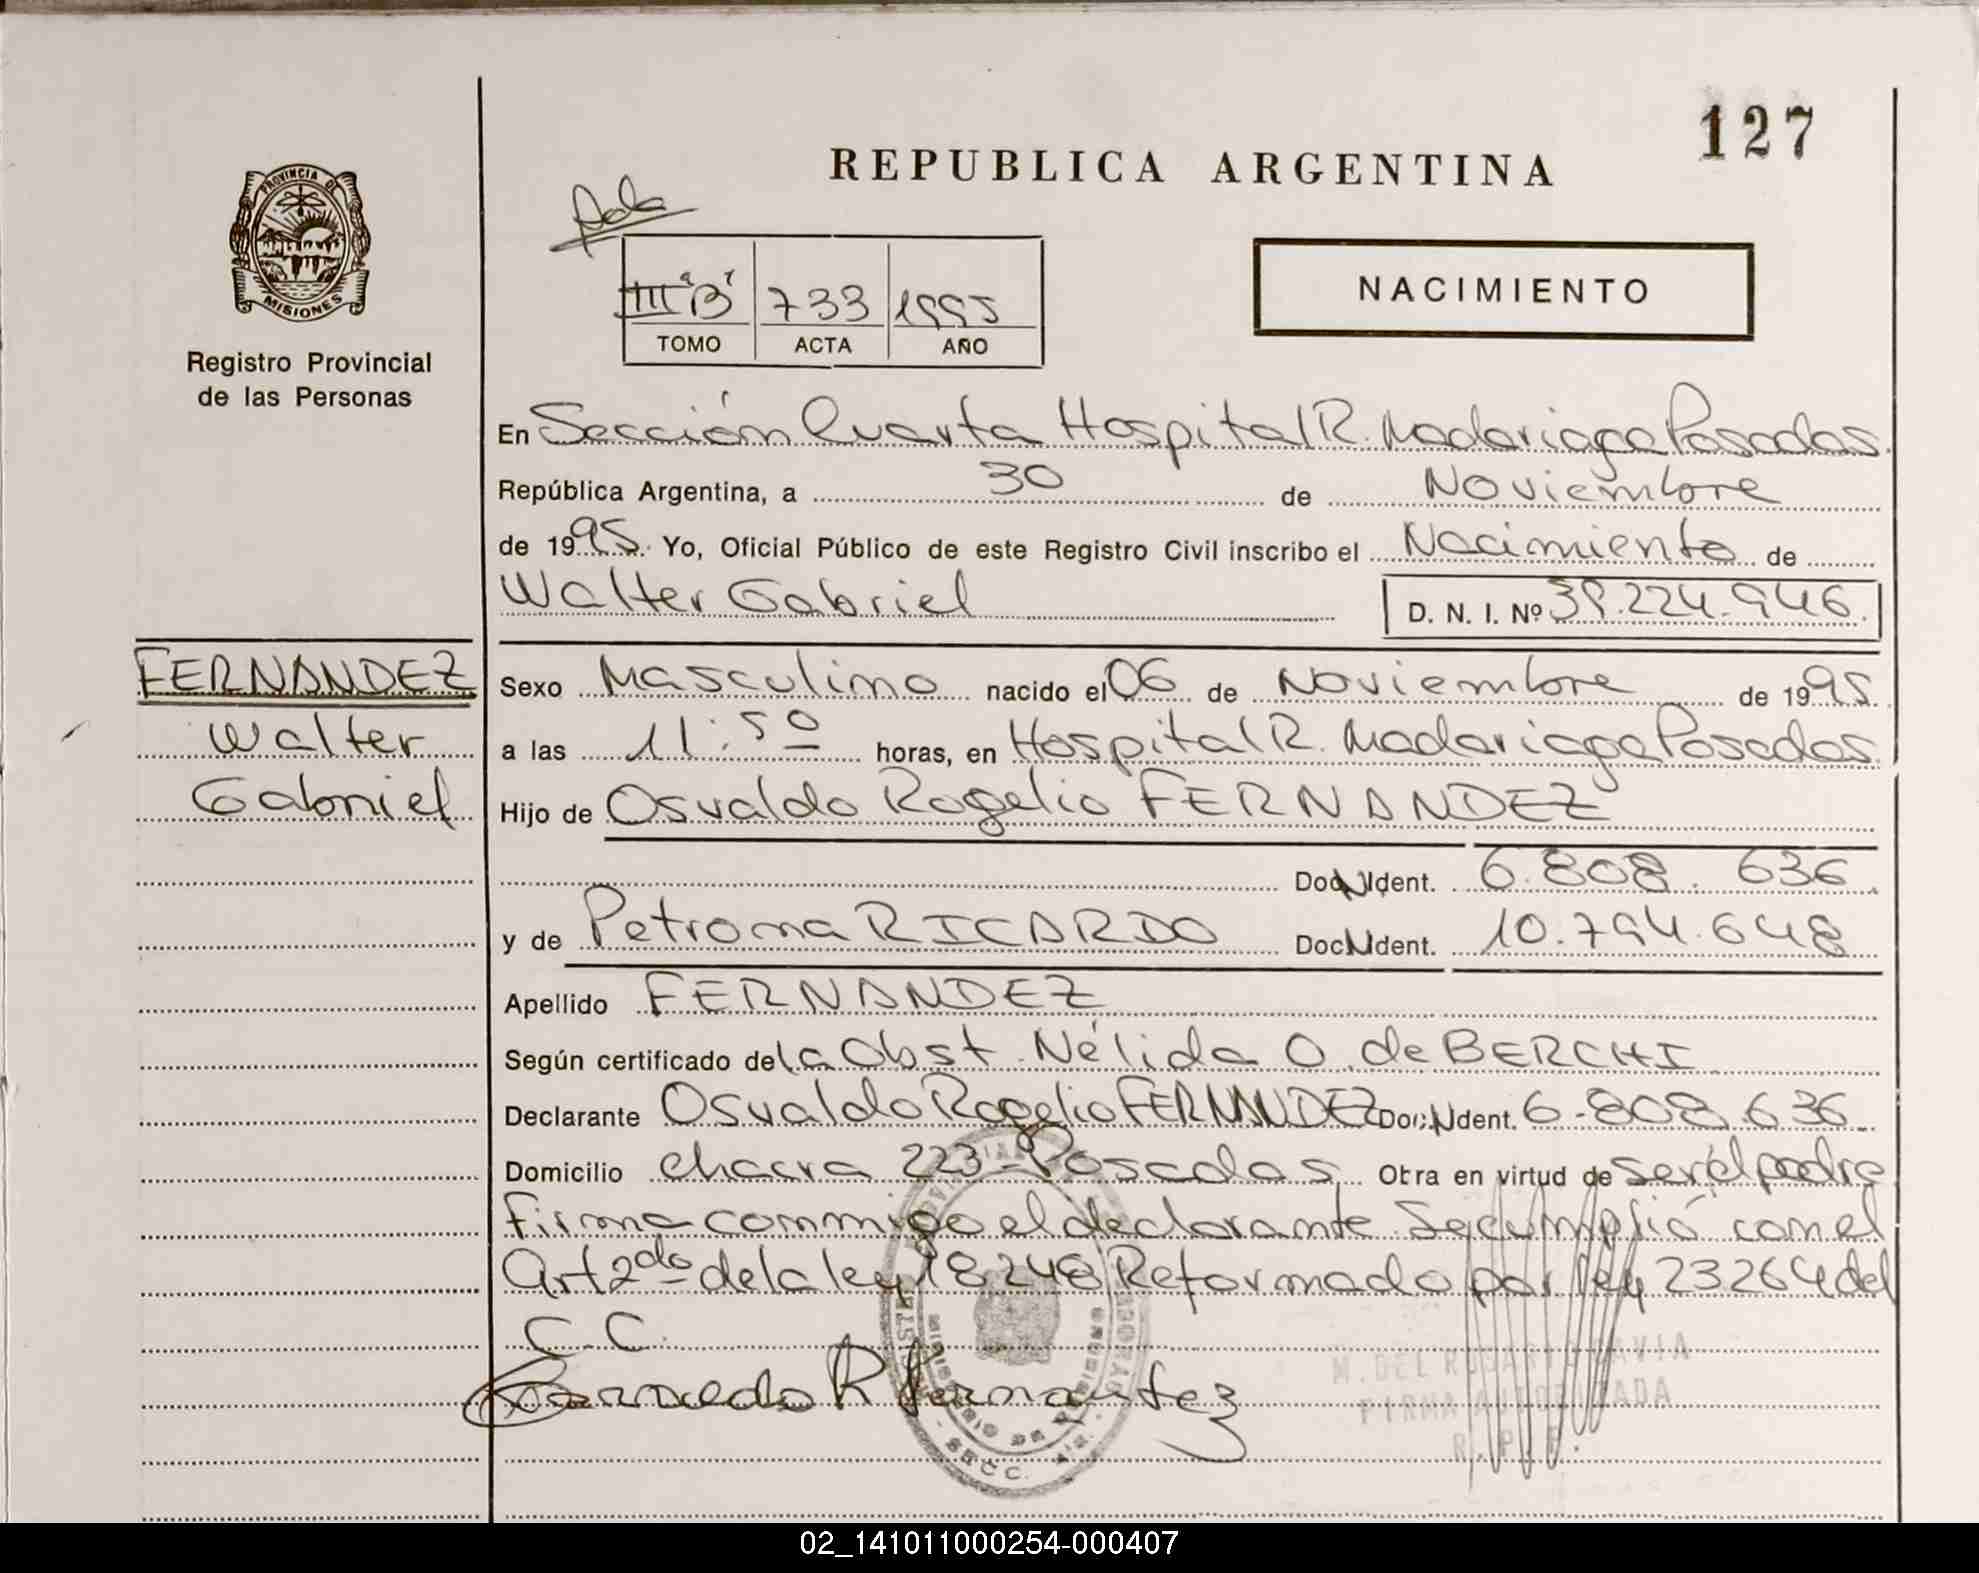 127
REPUBLICA ARGENTINA
PROVINCIA DE
MISIONES
Registro Provincial
de las Personas
NACIMIENTO
III "B" 733 1995
TOMO ACTA AÑO
En Sección Cuarta Hospital R. Madariaga Posadas
República Argentina, a 30 de Noviembre
de 1995 Yo, Oficial Público de este Registro Civil inscribo el Nacimiento de
Walter Gabriel D. N. I. Nº 39.224.946
FERNANDEZ
Walter
Gabriel
Sexo Masculino nacido el 06 de Noviembre de 1995
a las 11:50 horas, en Hospital R. Madariaga Posadas
Hijo de Osvaldo Rogelio FERNANDEZ
Doc. Ident. 6.808.636
y de Petrona RICARDO Doc. Ident. 10.794.648
Apellido FERNANDEZ
Según certificado de la Obst. Nélida O. de BERCHI
Declarante Osvaldo Rogelio FERNANDEZ Doc. Ident. 6.808.636
Domicilio Chacra 223 - Posadas Obra en virtud de ser el padre
firma conmigo el declarante Se cumplió con el
Art 2do de la ley 18248 Reformado por ley 23264 del
C.C.
R Fernandez
M. DEL ROSARIO
FIRMA AUTORIZADA
R. P. P.
SECC.
02_141011000254-000407